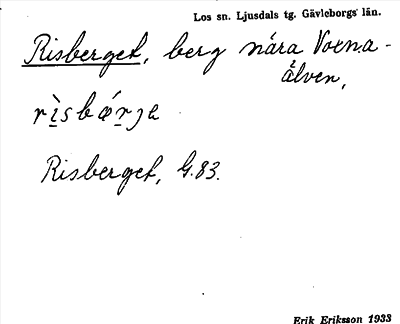 Los sn. Ljusdals tg. Gävleborgs län.
Risberget, berg nära Voxna-
älven,
rìsbǽrje
Risberget, G.83.
Erik Eriksson 1933